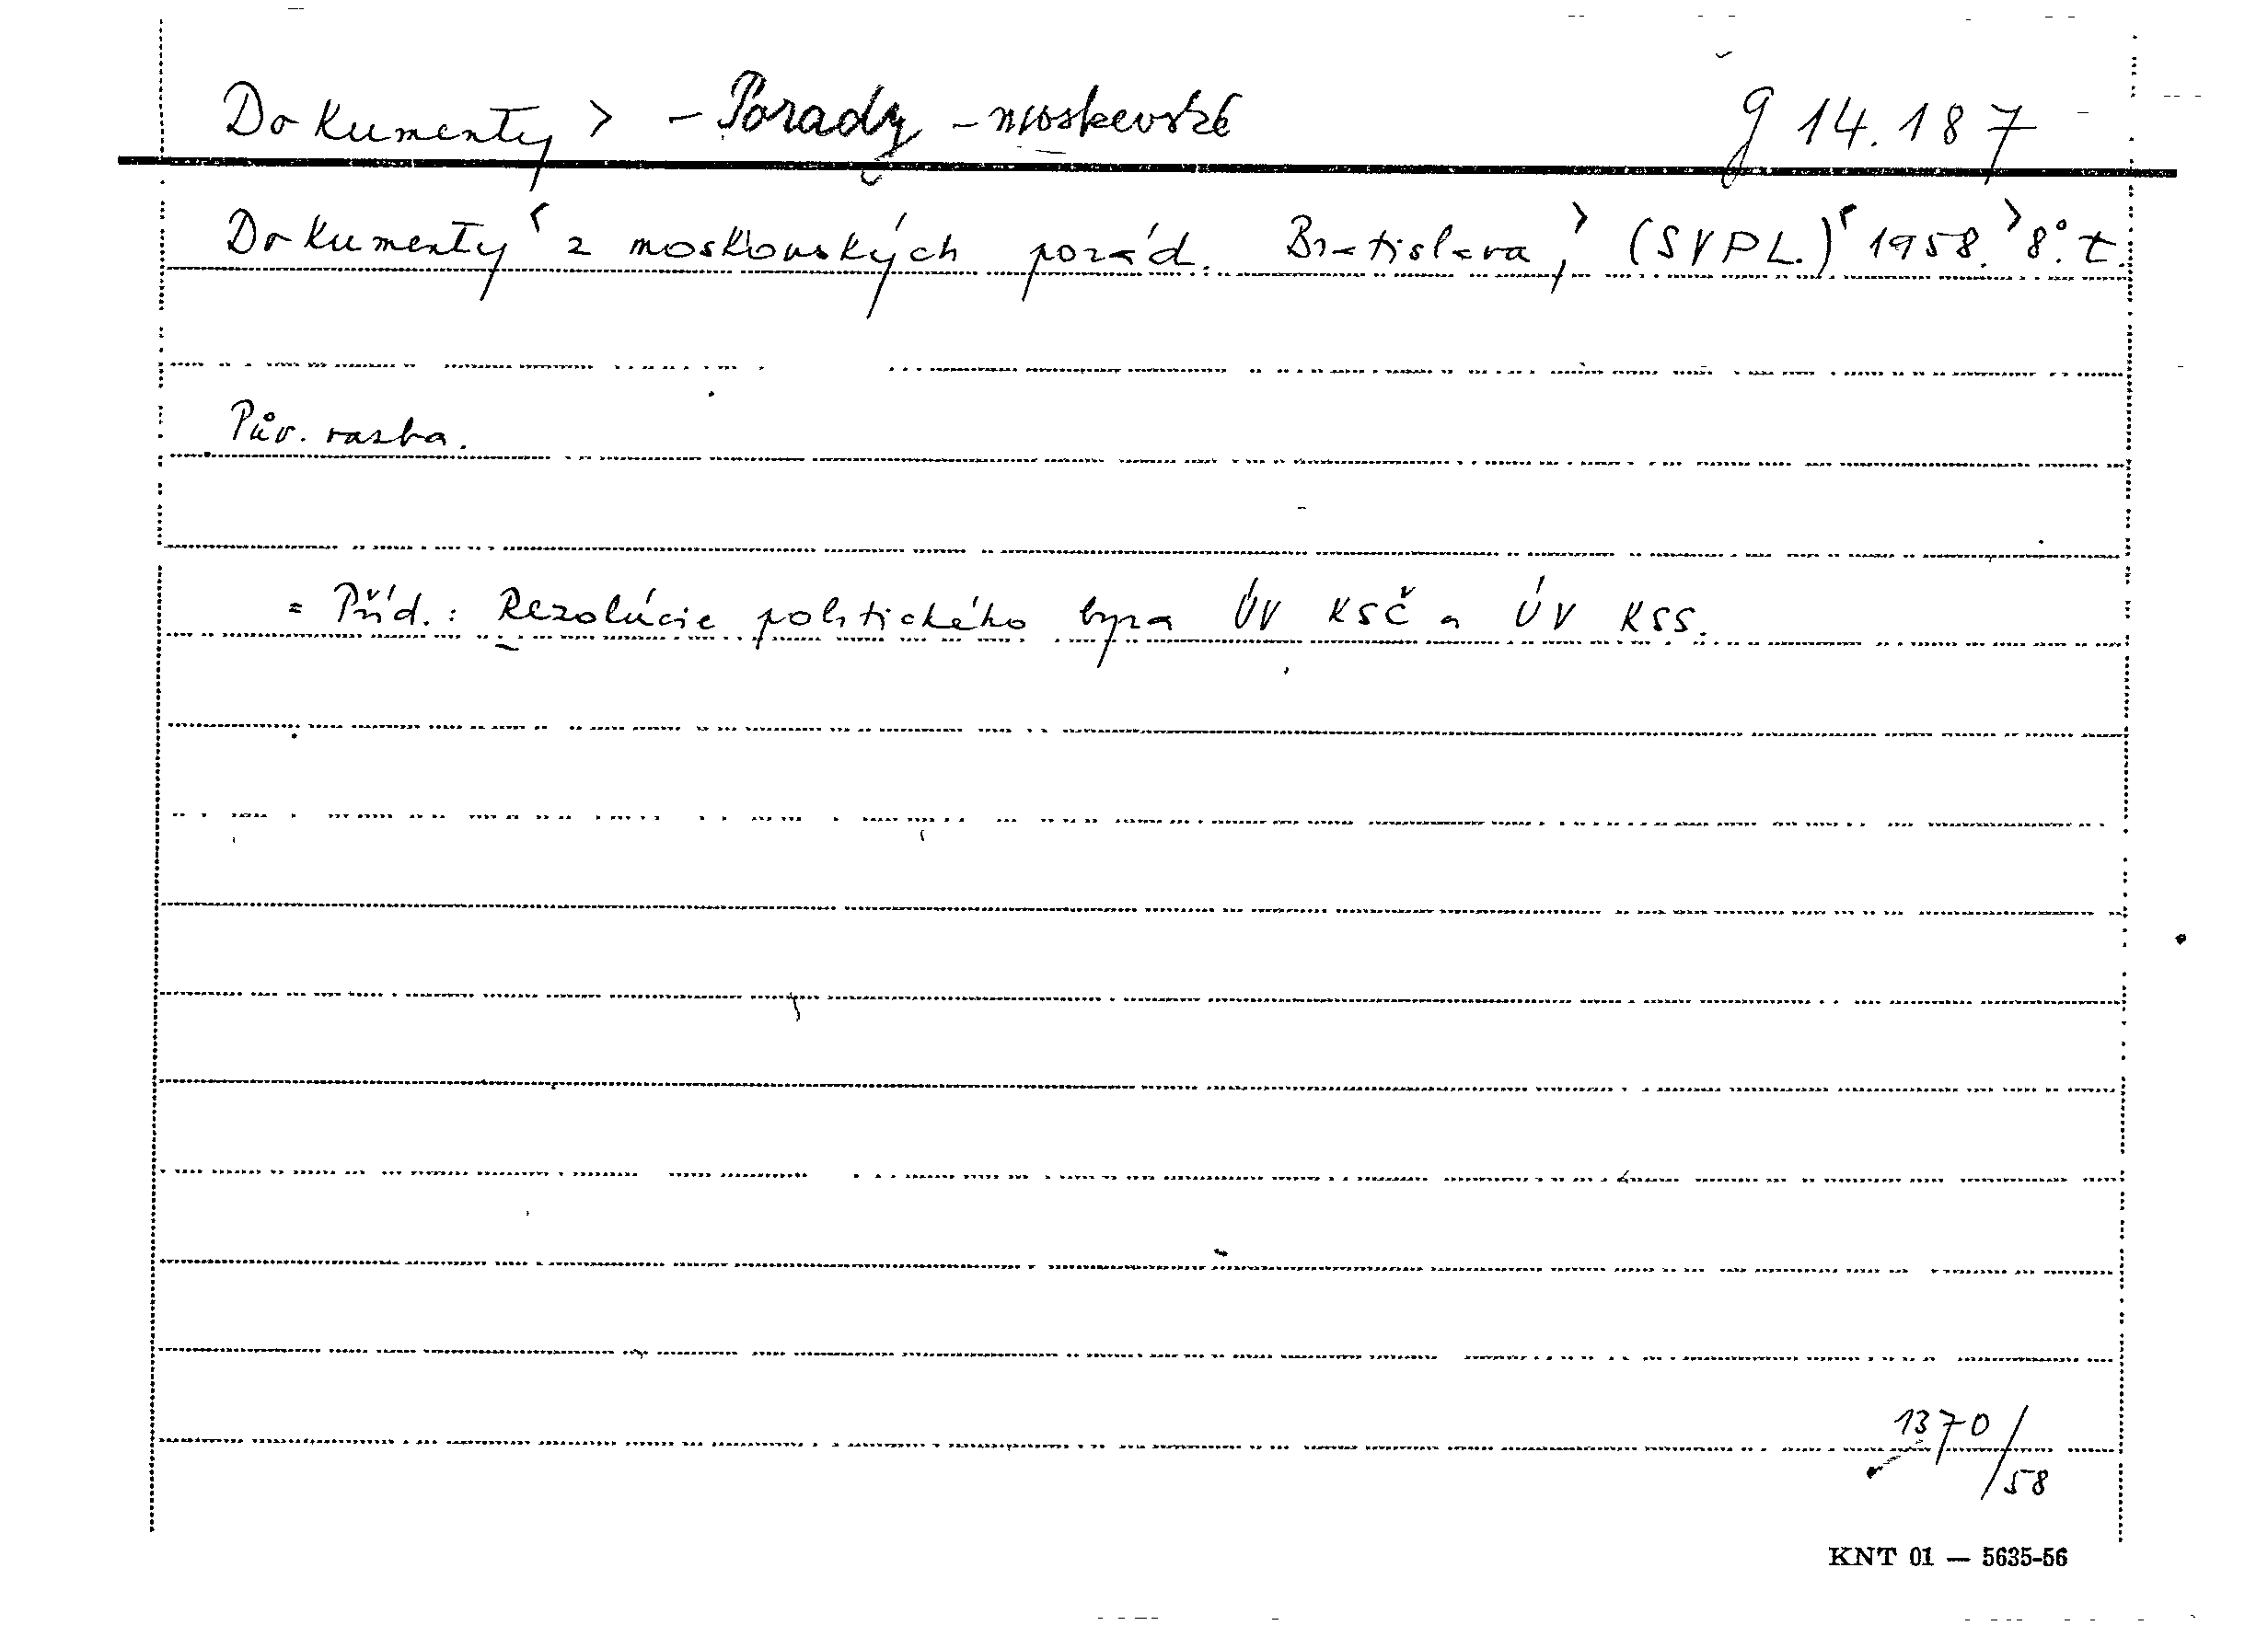 Dokumenty > - Porady - moskevské g 14.187
Dokumenty < z moskovských porád. Bratislava, > (SVPL.) < 1958. > 8°. t.
Pův. vazba.
= Příd.: Rezolúcie politického byra ÚV KSČ a ÚV KSS.
1370/58
KNT 01 — 5635-56